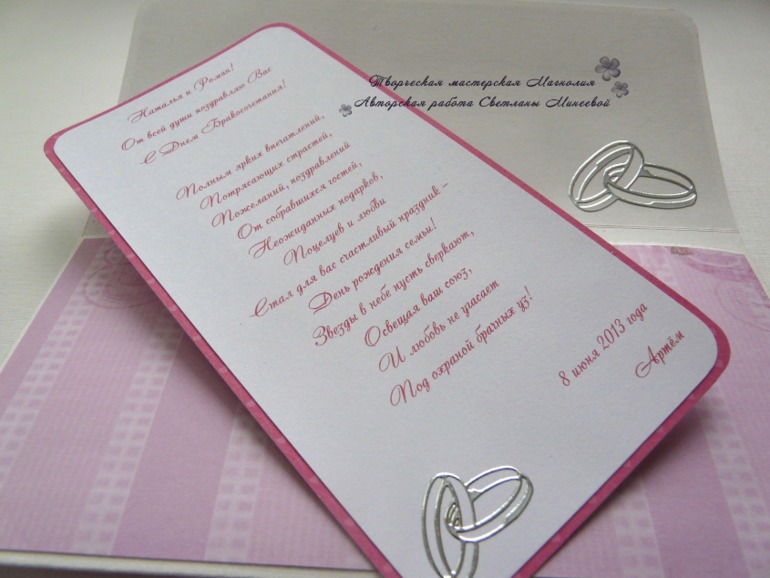 Творческая мастерская Магнолия
Авторская работа Светланы Минеевой
Наталья и Роман!
От всей души поздравляю Вас
С Днем Бракосочетания!
Полным ярких впечатлений,
Потрясающих страстей,
Пожеланий, поздравлений
От собравшихся гостей,
Неожиданных подарков,
Поцелуев и любви
Стал для вас счастливый праздник –
День рождения семьи!
Звезды в небе пусть сверкают,
Освещая ваш союз,
И любовь не угасает
Под охраной брачных уз!
8 июня 2013 года
Артём